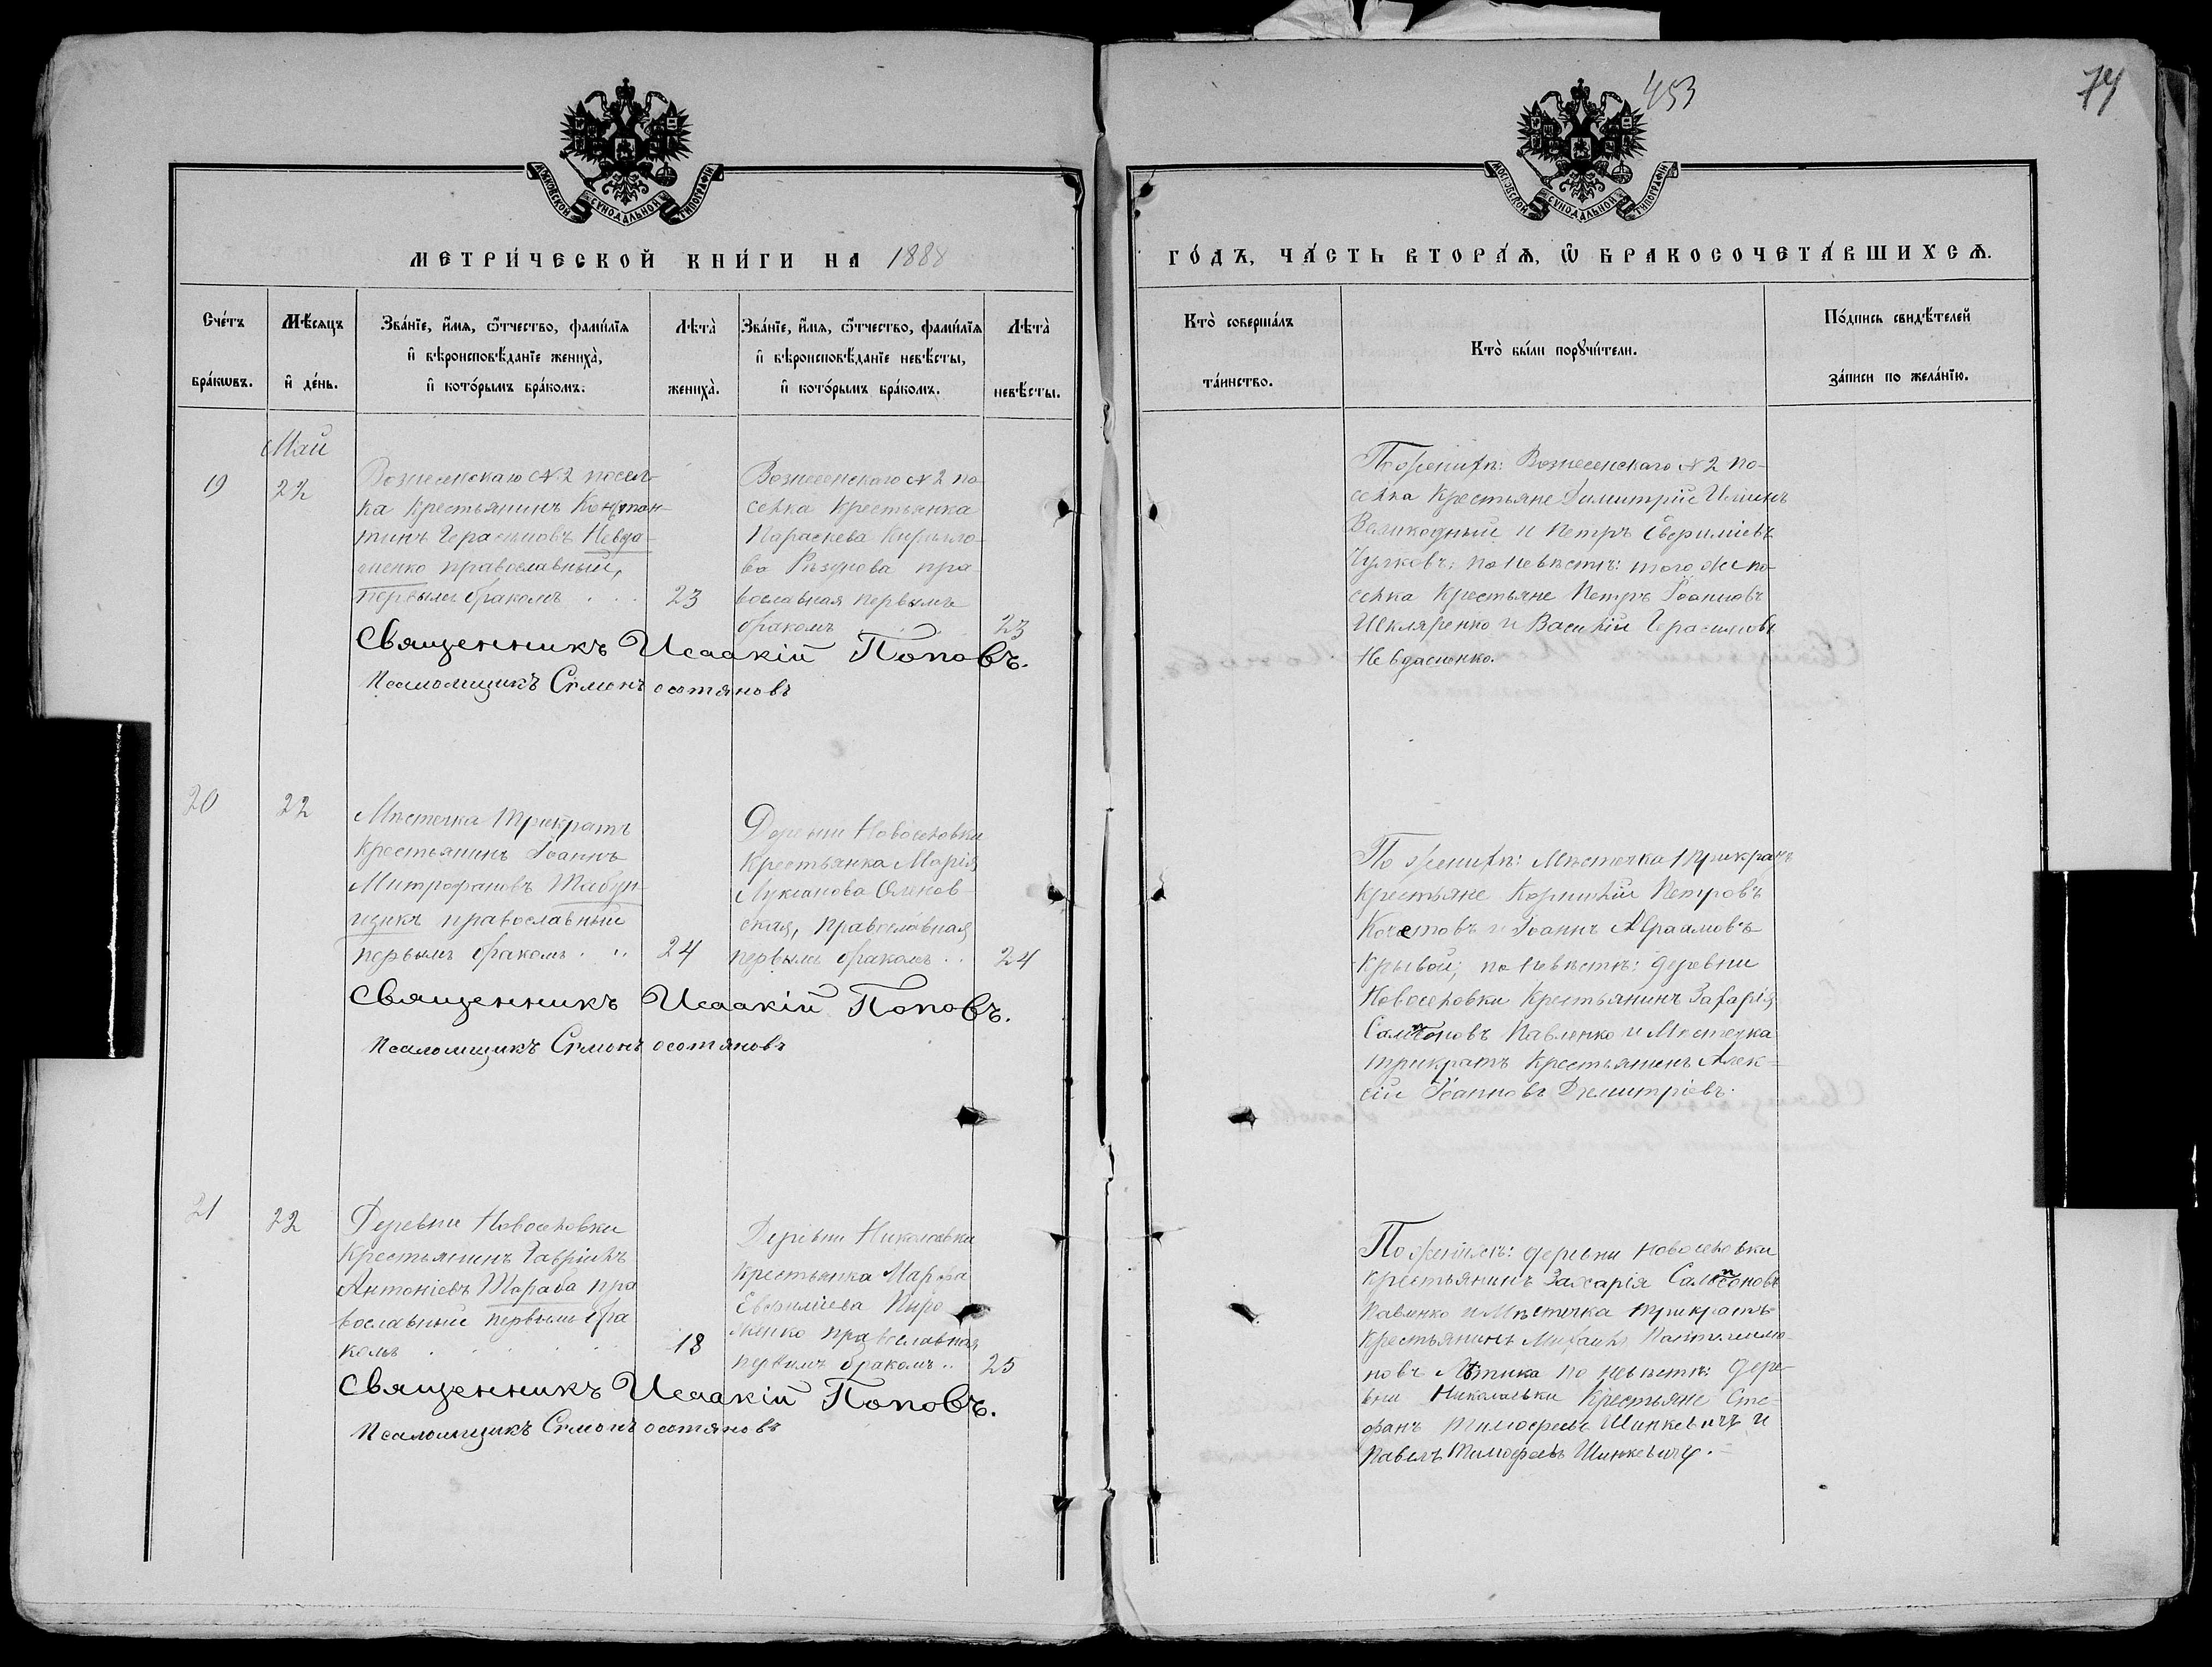 453
74
МОСКОВСКОЙ СѴНОДАЛЬНОЙ ТИПОГРАФІИ
МОСКОВСКОЙ СѴНОДАЛЬНОЙ ТИПОГРАФІИ
МЕТРИ́ЧЕСКОЙ КНИ́ГИ НА 1888
ГО́ДЪ, ЧА́СТЬ ВТОРА́Ѧ, Ѽ БРАКОСОЧЕТА́ВШИХСѦ.
Сче́тъ
бра́кѡвъ.
Мѣ́сѧцъ
и҆ де́нь.
Зва́нїе, и҆́мѧ, ѻ҆́тчество, фамѝлїѧ
и҆ вѣроисповѣ́данїе жениха̀,
и҆ кото́рымъ бра́комъ.
Лѣта̀
жениха̀.
Зва́нїе, и҆́мѧ, ѻ҆́тчество, фамѝлїѧ
и҆ вѣроисповѣ́данїе невѣ́сты,
и҆ кото́рымъ бра́комъ.
Лѣта̀
невѣ́сты.
Кто̀ соверша́лъ
та́инство.
Кто̀ бы́ли порꙋчи́тели.
По́дпись свидѣ́телей
за́писи по жела́нїю.
Май
19
22
Вознесенскаго №2 посел-
ка Крестьянинъ Констан-
тинъ Герасимовъ Невда-
шенко православный,
первымъ бракомъ . . .
23
Вознесенскаго №2 по
селка Крестьянка
Параскева Кирилло-
ва Рѣзунова пра-
вославная первымъ
бракомъ . . .
23
Священникъ Исаакій Поповъ.
Псаломщикъ Симонъ Осотяновъ
По женихѣ: Вознесенскаго №2 по-
селка Крестьяне Димитрій
Великодный и Петръ Евфиміевъ
Чулковъ; по невѣстѣ: того же по-
селка Крестьяне Петръ Іоанновъ
Шкляренко и Василій Герасимовъ
20
22
Мѣстечка Трикратъ
Крестьянинъ Іоаннъ
Митрофановъ Табун-
щикъ православный
первымъ бракомъ . ..
24
Деревни Новоселовки
Крестьянка Марія
Лукианова Оленов-
ская, православная
первымъ бракомъ . .
24
Священникъ Исаакій Поповъ.
Псаломщикъ Симонъ Осотяновъ
По женихѣ: Мѣстечка Трикратъ
Крестьяне Корнилій Петровъ
Кочетовъ и Іоаннъ Авраамовъ
Крывой; по невѣстѣ: деревни
Новоселовки Крестьянинъ Захарія
Сампсоновъ Павленко и Мѣстечка
Трикратъ Крестьянинъ Алек-
сій Іоанновъ Димитріевъ.
21
22
Деревни Новоселовки
Крестьянинъ Гавріилъ
Антоніевъ Тараба пра
вославный первымъ бра
комъ . . . . .
18
Деревни Николаевки
Крестьянка Марфа
Евфиміева Пиро
женко православная
первымъ бракомъ ..
25
Священникъ Исаакій Поповъ.
Псаломщикъ Симонъ Осотяновъ
По женихѣ: деревни Новоселовки
Крестьянинъ Захарія Сампсоновъ
Павленко и Мѣстечка Трикратъ
Крестьянинъ Михаилъ Пантелеимо-
новъ по невѣстѣ: дере-
вни Николаевки Крестьяне Сте-
фанъ Тимофеевъ Шинкевичъ и
Павелъ Тимофеевъ Шинкевичъ.